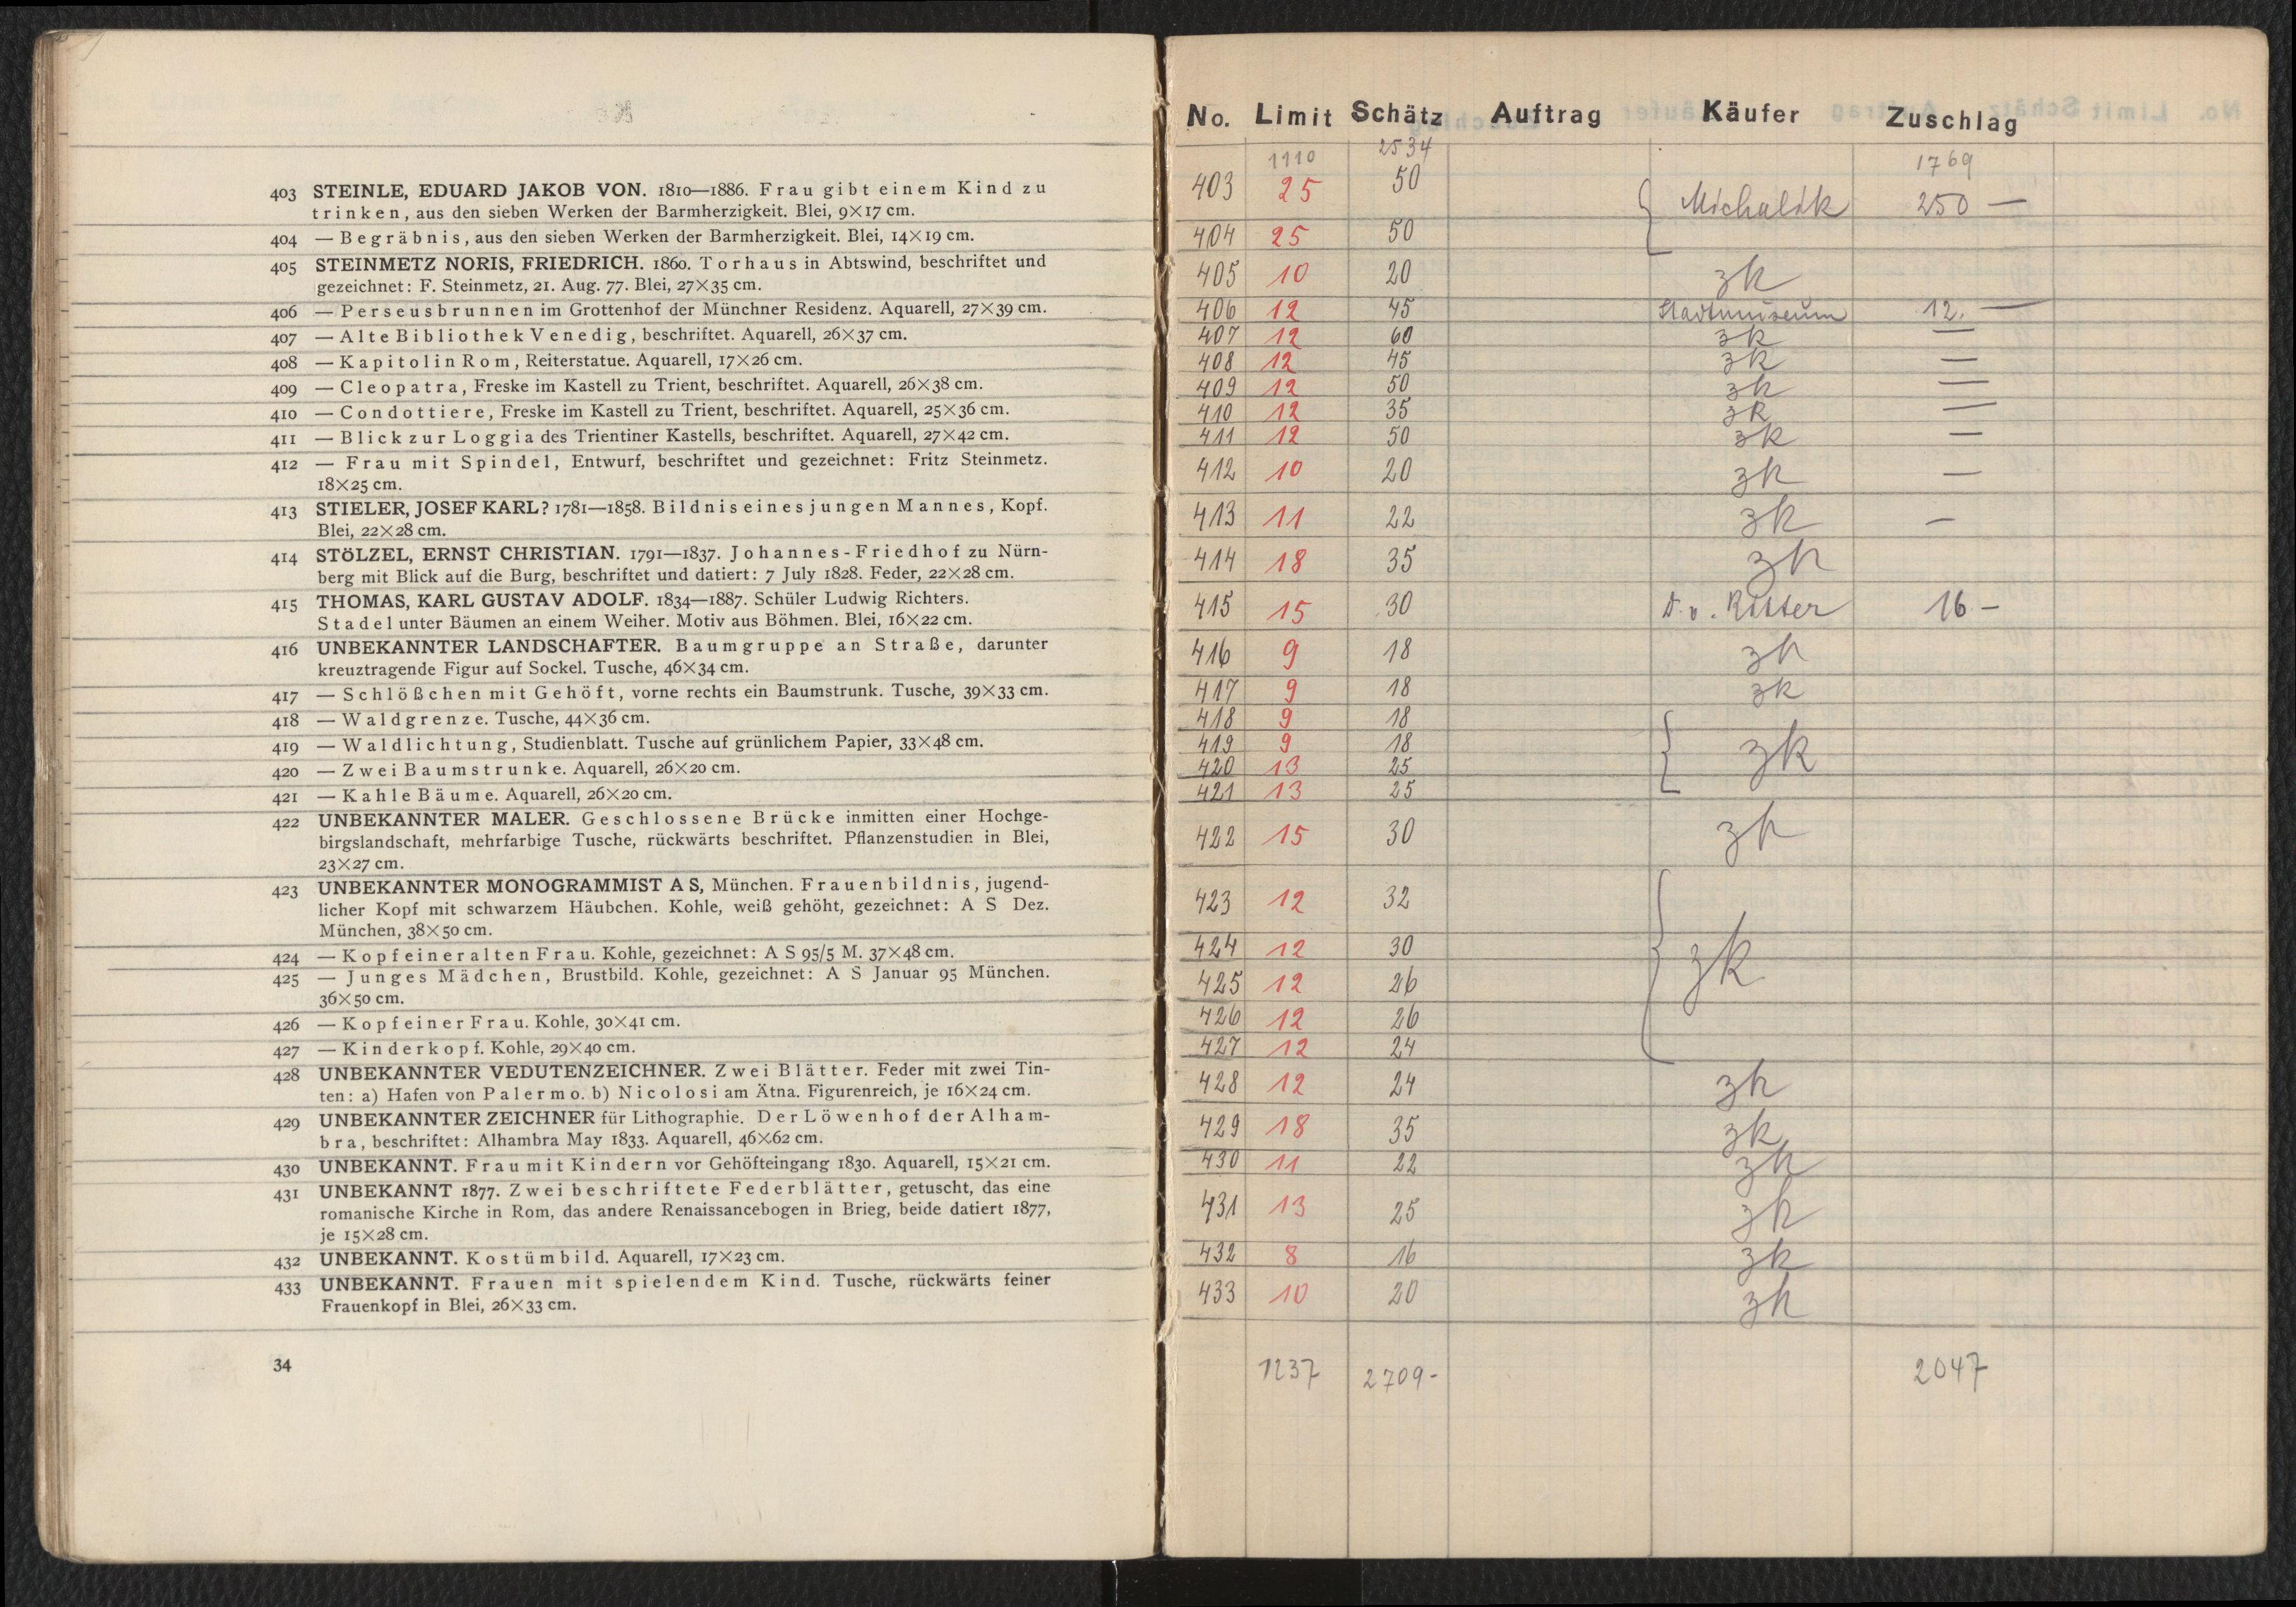 403 STEINLE, EDUARD JAKOB VON. 1810—1886. Frau gibt einem Kind zu
trinken, aus den sieben Werken der Barmherzigkeit. Blei, 9×17 cm.
404 — Begräbnis, aus den sieben Werken der Barmherzigkeit. Blei, 14×19 cm.
405 STEINMETZ NORIS, FRIEDRICH. 1860. Torhaus in Abtswind, beschriftet und
gezeichnet: F. Steinmetz, 21. Aug. 77. Blei, 27×35 cm.
406 — Perseusbrunnen im Grottenhof der Münchner Residenz. Aquarell, 27×39 cm.
407 — Alte Bibliothek Venedig, beschriftet. Aquarell, 26×37 cm.
408 — Kapitol in Rom, Reiterstatue. Aquarell, 17×26 cm.
409 — Cleopatra, Freske im Kastell zu Trient, beschriftet. Aquarell, 26×38 cm.
410 — Condottiere, Freske im Kastell zu Trient, beschriftet. Aquarell, 25×36 cm.
411 — Blick zur Loggia des Trientiner Kastells, beschriftet. Aquarell, 27×42 cm.
412 — Frau mit Spindel, Entwurf, beschriftet und gezeichnet: Fritz Steinmetz.
18×25 cm.
413 STIELER, JOSEF KARL? 1781—1858. Bildnis eines jungen Mannes, Kopf.
Blei, 22×28 cm.
414 STÖLZEL, ERNST CHRISTIAN. 1791—1837. Johannes-Friedhof zu Nürn-
berg mit Blick auf die Burg, beschriftet und datiert: 7 July 1828. Feder, 22×28 cm.
415 THOMAS, KARL GUSTAV ADOLF. 1834—1887. Schüler Ludwig Richters.
Stadel unter Bäumen an einem Weiher. Motiv aus Böhmen. Blei, 16×22 cm.
416 UNBEKANNTER LANDSCHAFTER. Baumgruppe an Straße, darunter
kreuztragende Figur auf Sockel. Tusche, 46×34 cm.
417 — Schlößchen mit Gehöft, vorne rechts ein Baumstrunk. Tusche, 39×33 cm.
418 — Waldgrenze. Tusche, 44×36 cm.
419 — Waldlichtung, Studienblatt. Tusche auf grünlichem Papier, 33×48 cm.
420 — Zwei Baumstrunke. Aquarell, 26×20 cm.
421 — Kahle Bäume. Aquarell, 26×20 cm.
422 UNBEKANNTER MALER. Geschlossene Brücke inmitten einer Hochge-
birgslandschaft, mehrfarbige Tusche, rückwärts beschriftet. Pflanzenstudien in Blei,
23×27 cm.
423 UNBEKANNTER MONOGRAMMIST A S, München. Frauenbildnis, jugend-
licher Kopf mit schwarzem Häubchen. Kohle, weiß gehöht, gezeichnet: A S Dez.
München, 38×50 cm.
424 — Kopf einer alten Frau. Kohle, gezeichnet: A S 95/5 M. 37×48 cm.
425 — Junges Mädchen, Brustbild. Kohle, gezeichnet: A S Januar 95 München.
36×50 cm.
426 — Kopf einer Frau. Kohle, 30×41 cm.
427 — Kinderkopf. Kohle, 29×40 cm.
428 UNBEKANNTER VEDUTENZEICHNER. Zwei Blätter. Feder mit zwei Tin-
ten: a) Hafen von Palermo. b) Nicolosi am Ätna. Figurenreich, je 16×24 cm.
429 UNBEKANNTER ZEICHNER für Lithographie. Der Löwenhof der Alham-
bra, beschriftet: Alhambra May 1833. Aquarell, 46×62 cm.
430 UNBEKANNT. Frau mit Kindern vor Gehöfteingang 1830. Aquarell, 15×21 cm.
431 UNBEKANNT 1877. Zwei beschriftete Federblätter, getuscht, das eine
romanische Kirche in Rom, das andere Renaissancebogen in Brieg, beide datiert 1877,
je 15×28 cm.
432 UNBEKANNT. Kostümbild. Aquarell, 17×23 cm.
433 UNBEKANNT. Frauen mit spielendem Kind. Tusche, rückwärts feiner
Frauenkopf in Blei, 26×33 cm.
34
No. Limit Schätz Auftrag Käufer Zuschlag
1110 2534 1769
403 25 50 Michalik 250 —
404 25 50
405 10 20 zk
406 12 45 Stadtmuseum 12. —
407 12 60 zk —
408 12 45 zk —
409 12 50 zk —
410 12 35 zk —
411 12 50 zk —
412 10 20 zk —
413 11 22 zk —
414 18 35 zk
415 15 30 v. Ritter 16 —
416 9 18 zk
417 9 18 zk
418 9 18
419 9 18 zk
420 13 25
421 13 25
422 15 30 zk
423 12 32
424 12 30 zk
425 12 26
426 12 26
427 12 24
428 12 24 zk
429 18 35 zk
430 11 22 zk
431 13 25 zk
432 8 16 zk
433 10 20 zk
1237 2709- 2047